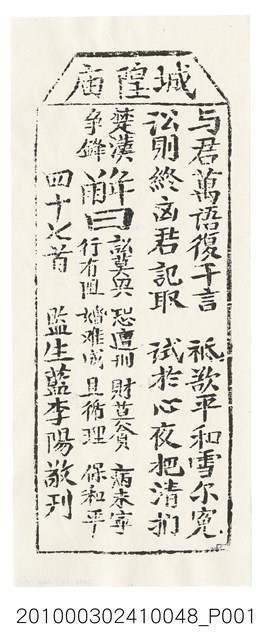 城隍庙
与君萬語復千言　祗欲平和雪尔寃
讼則終凶君記取　試於心夜把清捫
楚漢争鋒
解曰
訟莫興　恐遭刑　財莫貪　病未寧
行有阻　婚难成　且循理　保和平
四十七首　監生藍李陽敬刊
201000302410048_P001